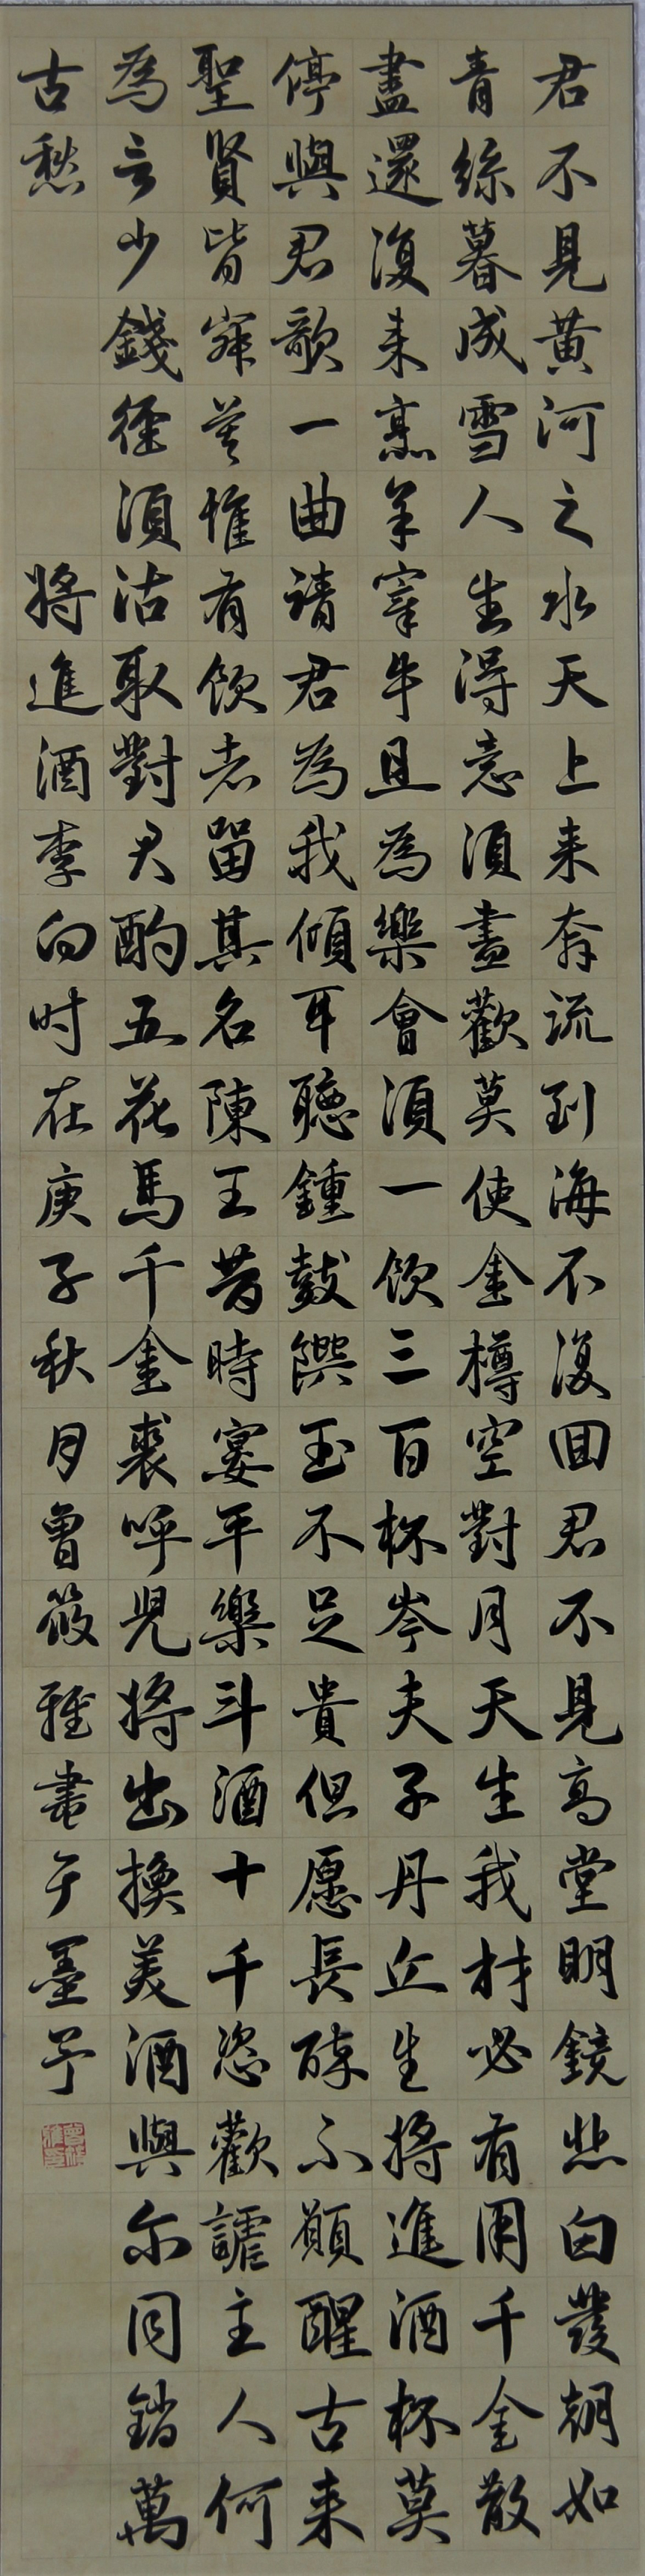 君不見黃河之水天上来奔流到海不復回君不見高堂明鏡悲白发朝如
青絲暮成雪人生得意須盡歡莫使金樽空對月天生我材必有用千金散
盡還復来烹羊宰牛且為樂會須一飲三百杯岑夫子丹丘生將進酒杯莫
停與君歌一曲請君為我傾耳聽鍾鼓饌玉不足貴但愿長醉不願醒古来
聖賢皆寂莫惟有飲者留其名陳王昔時宴平樂斗酒十千恣歡謔主人何
為言少錢徑須沽取對君酌五花馬千金裘呼兒將出換美酒與尔同銷萬
古愁
將進酒李白时在庚子秋月曾筱雅書于墨予